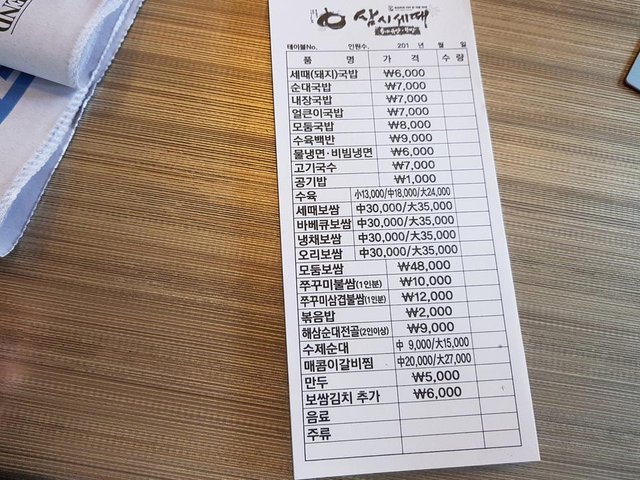 END
삼시세때
테이블No. 인원수. 201 년 월 일
품 명 가 격 수 량
세때(돼지)국밥 ₩6,000
순대국밥 ₩7,000
내장국밥 ₩7,000
얼큰이국밥 ₩7,000
모둠국밥 ₩8,000
수육백반 ₩9,000
물냉면·비빔냉면 ₩6,000
고기국수 ₩7,000
공기밥 ₩1,000
수육 小13,000/中18,000/大24,000
세때보쌈 中30,000/大35,000
바베큐보쌈 中30,000/大35,000
냉채보쌈 中30,000/大35,000
오리보쌈 中30,000/大35,000
모둠보쌈 ₩48,000
쭈꾸미불쌈(1인분) ₩10,000
쭈꾸미삼겹불쌈(1인분) ₩12,000
볶음밥 ₩2,000
해삼순대전골(2인이상) ₩9,000
수제순대 中 9,000/大15,000
매콤이갈비찜 中20,000/大27,000
만두 ₩5,000
보쌈김치 추가 ₩6,000
음료
주류